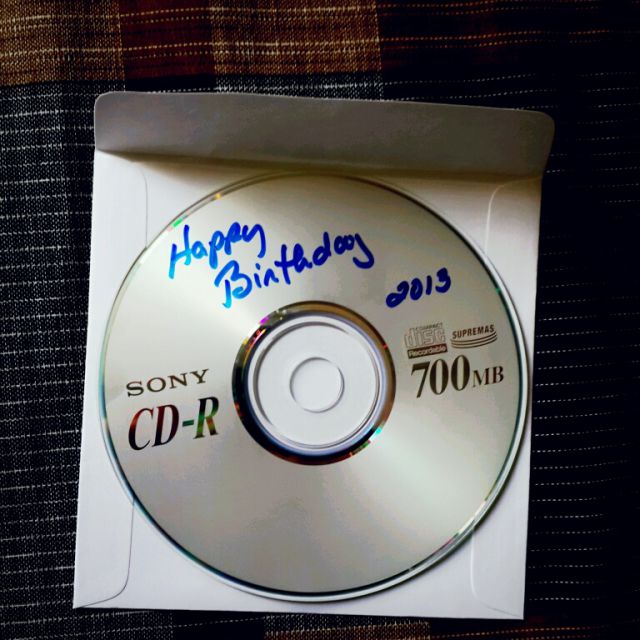 Happy
Birthday
2013
COMPACT
disc
Recordable
SUPREMAS
700MB
SONY
CD-R